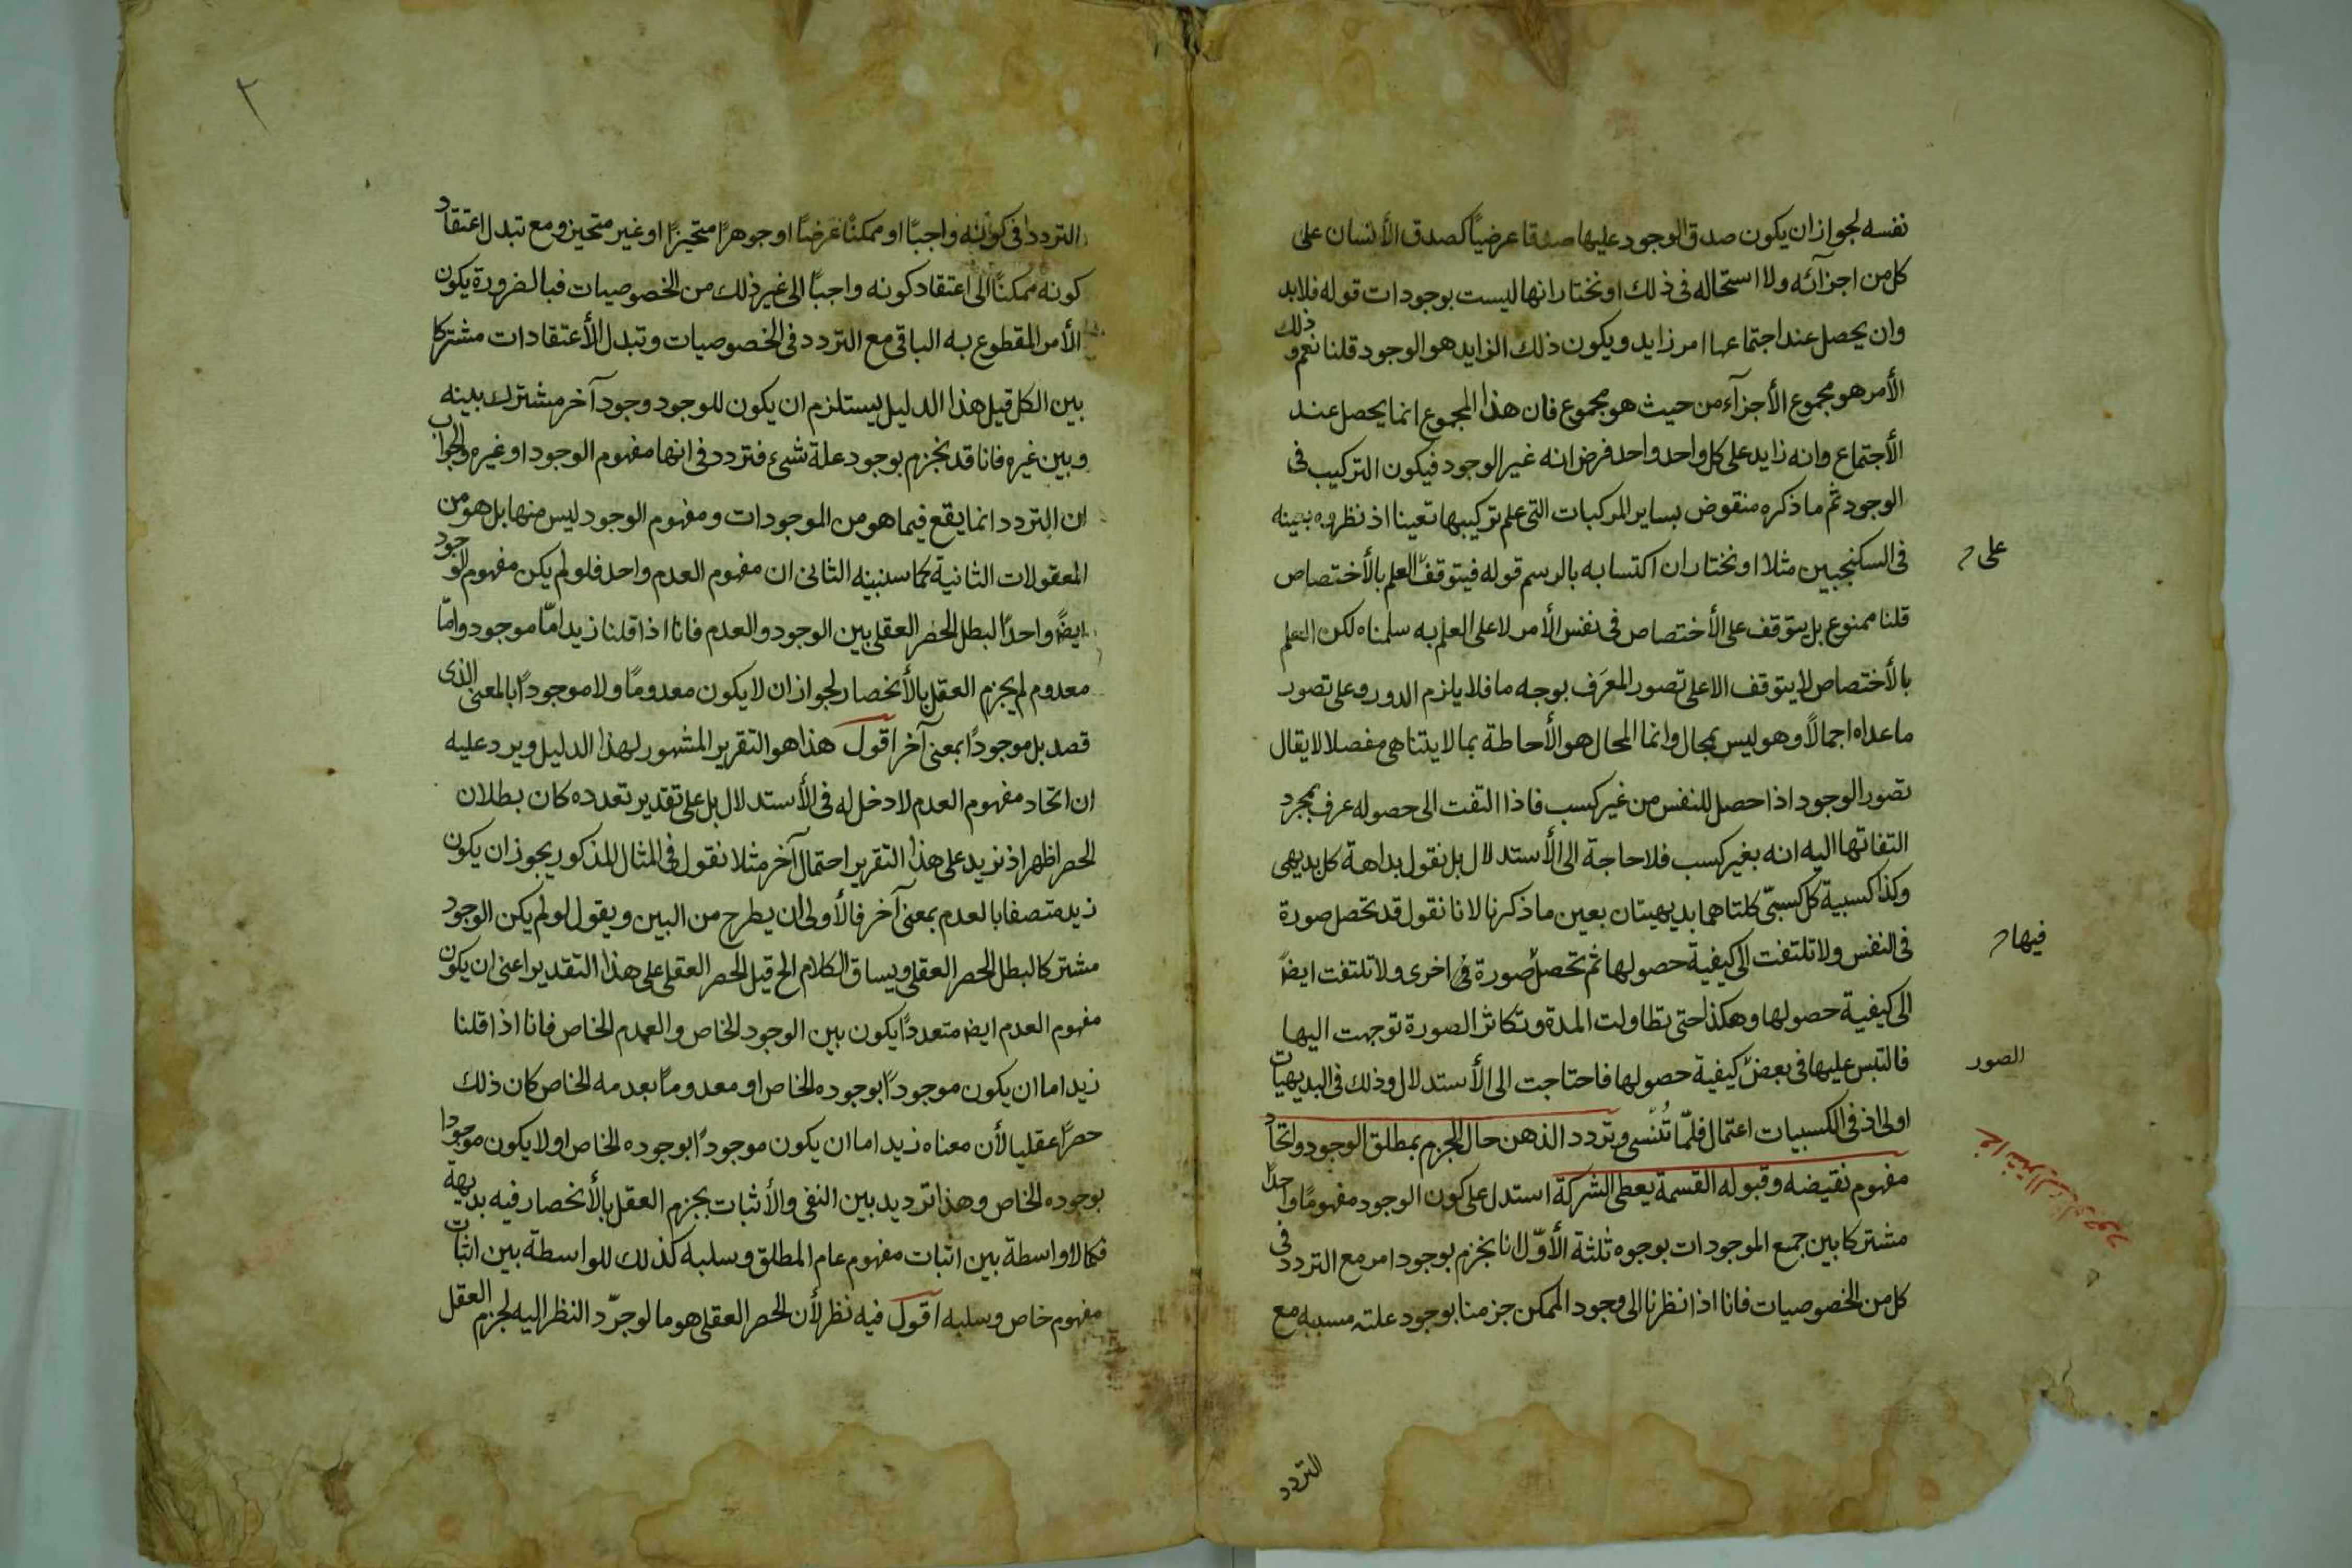 نفسه لجواز ان يكون صدق الوجود عليها صدقا عرضيًا كصدق الأنسان على
كل من اجزائه ولا استحاله فى ذلك او نختار انها ليست بوجودات قوله فلابد
وان يحصل عند اجتماعها امر زايد ويكون ذلك الزايد هو الوجود قلنا نعم وذلك
الأمر هو مجموع الأجزآء من حيث هو مجموع فان هذا المجموع انما يحصل عند
الأجتماع وانه زايد على كل واحد واحد فرض انه غير الوجود فيكون التركيب فى
الوجود ثم ما ذكره منقوض بساير المركبات التى علم تركيبها تعينا اذ نظروه بعينه
فى السكنجبين مثلا او نختار ان اكتسابه بالرسم قوله فيتوقف العلم بالأختصاص
على
قلنا ممنوع بل يتوقف على الأختصاص فى نفس الأمر لا على العلم به سلمناه لكن العلم
بالأختصاص لا يتوقف الا على تصور المعرَف بوجه ما فلا يلزم الدور وعلى تصور
ما عداه اجمالاً وهو ليس بمحال وانما المحال هو الأحاطة بما لا يتناهى مفصلا لا يقال
تصور الوجود اذا حصل للنفس من غير كسب فاذا التفت الى حصوله عرف بمجرد
التفاتها اليه انه بغير كسب فلا حاجة الى الأستدلال بل نقول بداهة كل بديهى
وكذا كسبية كل كسبىّ كلتاهما بديهيتان بعين ما ذكرنا لانا نقول قد تحصل صورة
فى النفس ولا تلتفت الى كيفية حصولها ثم تحصل صورة اخرى ولا تلتفت ايضً
فيها
الى كيفية حصولها وهكذا حتى تطاولت المدة وتكاثر الصورة توجهت اليها
فالتبس عليها فى بعض كيفية حصولها فاحتاجت الى الأستدلال وذلك فى البديهيات
الصور
اولى اذ فى الكسبيات اعتمال فلمّا تُنسى وتردد الذهن حال الجزم بمطلق الوجود واتحاد
مفهوم نقيضه وقبوله القسمة يعطى الشركة استدل على كون الوجود مفهومًا واحدًا
مشتركا بين جمع الموجودات بوجوه ثلثة الأوّل انا نجزم بوجود امر مع التردد فى
كل من الخصوصيات فانا اذا نظرنا الى وجود الممكن جزمنا بوجود علته مسببه مع
التردد
٢
التردد فى كونه واجبًا او ممكنًا عرضًا او جوهرًا متحيزًا او غير متحيز ومع تبدل اعتقاد
كونه ممكنًا الى اعتقاد كونه واجبًا الى غير ذلك من الخصوصيات فبالضرورة يكون
الأمر المقطوع به الباقى مع التردد فى الخصوصيات وتبدل الأعتقادات مشتركا
بين الكل قيل هذا الدليل يستلزم ان يكون للوجود وجود آخر مشترك بينه
وبين غيره فانا قد نجزم بوجود علة شىء فتردد فى انها مفهوم الوجود او غيره والجواب
ان التردد انما يقع فيما هو من الموجودات ومفهوم الوجود ليس منها بل هو من
المعقولات الثانية كما سنبينه الثانى ان مفهوم العدم واحد فلو لم يكن مفهوم الوجود
ايضً واحدًا لبطل الحصر العقلى بين الوجود والعدم فانا اذا قلنا زيد امّا موجود وامّا
معدوم لم يجزم العقل بالأنحصار لجواز ان لا يكون معدومًا ولا موجودًا بالمعنى الذى
قصد بل موجودًا بمعنى آخر اقول هذا هو التقرير المشهور لهذا الدليل ويرد عليه
ان اتحاد مفهوم العدم لا دخل له فى الأستدلال بل على تقدير تعدده كان بطلان
الحصر اظهر اذ نزيد على هذا التقرير احتمال آخر مثلا نقول فى المثال المذكور يجوز ان يكون
زيد متصفا بالعدم بمعنى آخر فالأولى ان يطرح من البين ويقول لو لم يكن الوجود
مشتركا لبطل الحصر العقلى ويساق الكلام الخ قيل الحصر العقلى على هذا التقدير اعنى ان يكون
مفهوم العدم ايضا متعددًا يكون بين الوجود الخاص والعدم الخاص فانا اذا قلنا
زيد اما ان يكون موجودًا بوجوده الخاص او معدومًا بعدمه الخاص كان ذلك
حصرًا عقليا لأن معناه زيد اما ان يكون موجودًا بوجوده الخاص او لا يكون موجودا
بوجوده الخاص وهذا ترديد بين النفى والأثبات يجزم العقل بالأنحصار فيه بديهة
فكما لا واسطة بين اثبات مفهوم عام المطلق وسلبه كذلك لا واسطة بين اثبات
مفهوم خاص وسلبه اقول فيه نظر لأن الحصر العقلى هو ما لو جرّد النظر اليه لجزم العقل